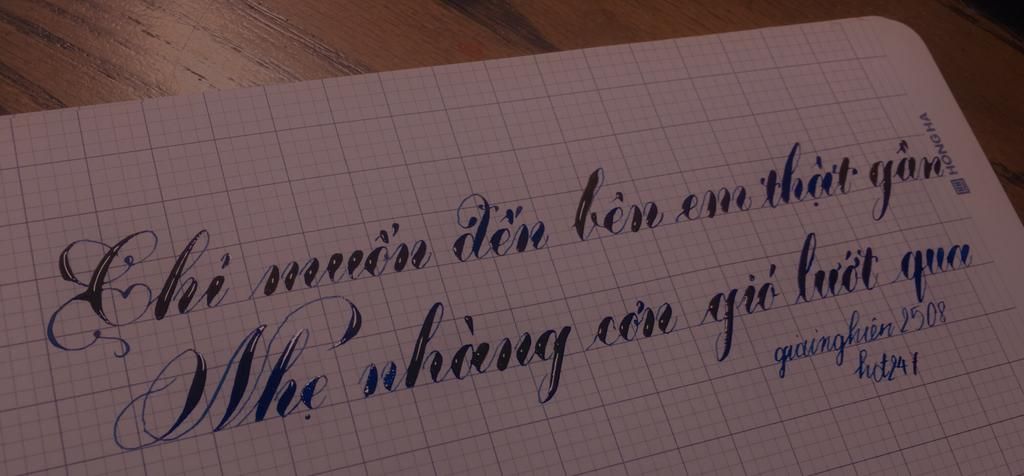 Chỉ muốn đến bên em thật gần
Nhẹ nhàng cơn gió lướt qua
giainghiên2508
hct241
HONG HA